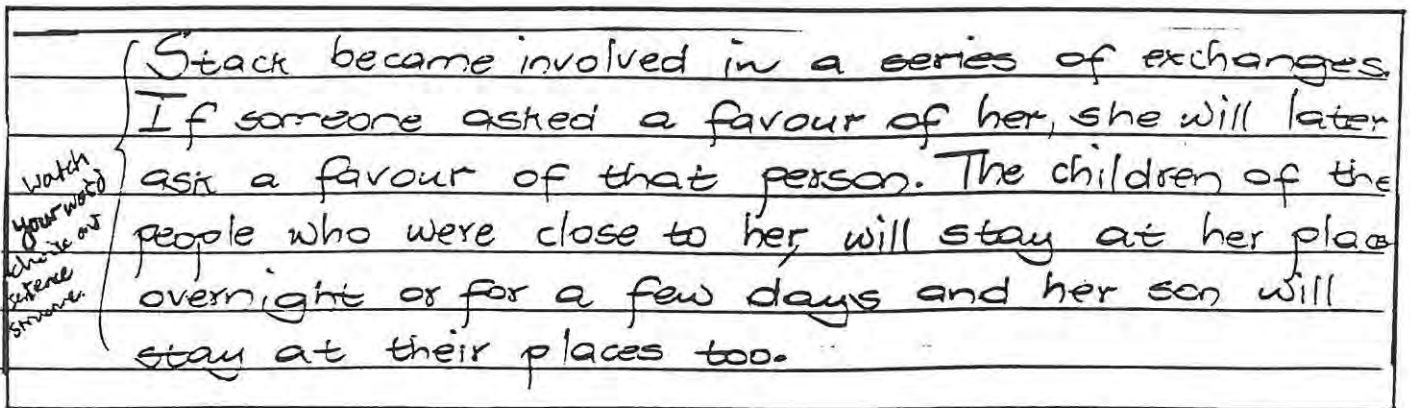 Stack became involved in a series of exchanges.
If someone asked a favour of her, she will later
ask a favour of that person. The children of the
people who were close to her, will stay at her place
overnight or for a few days and her son will
stay at their places too.
watch
your word
choice and
sentence
structure.